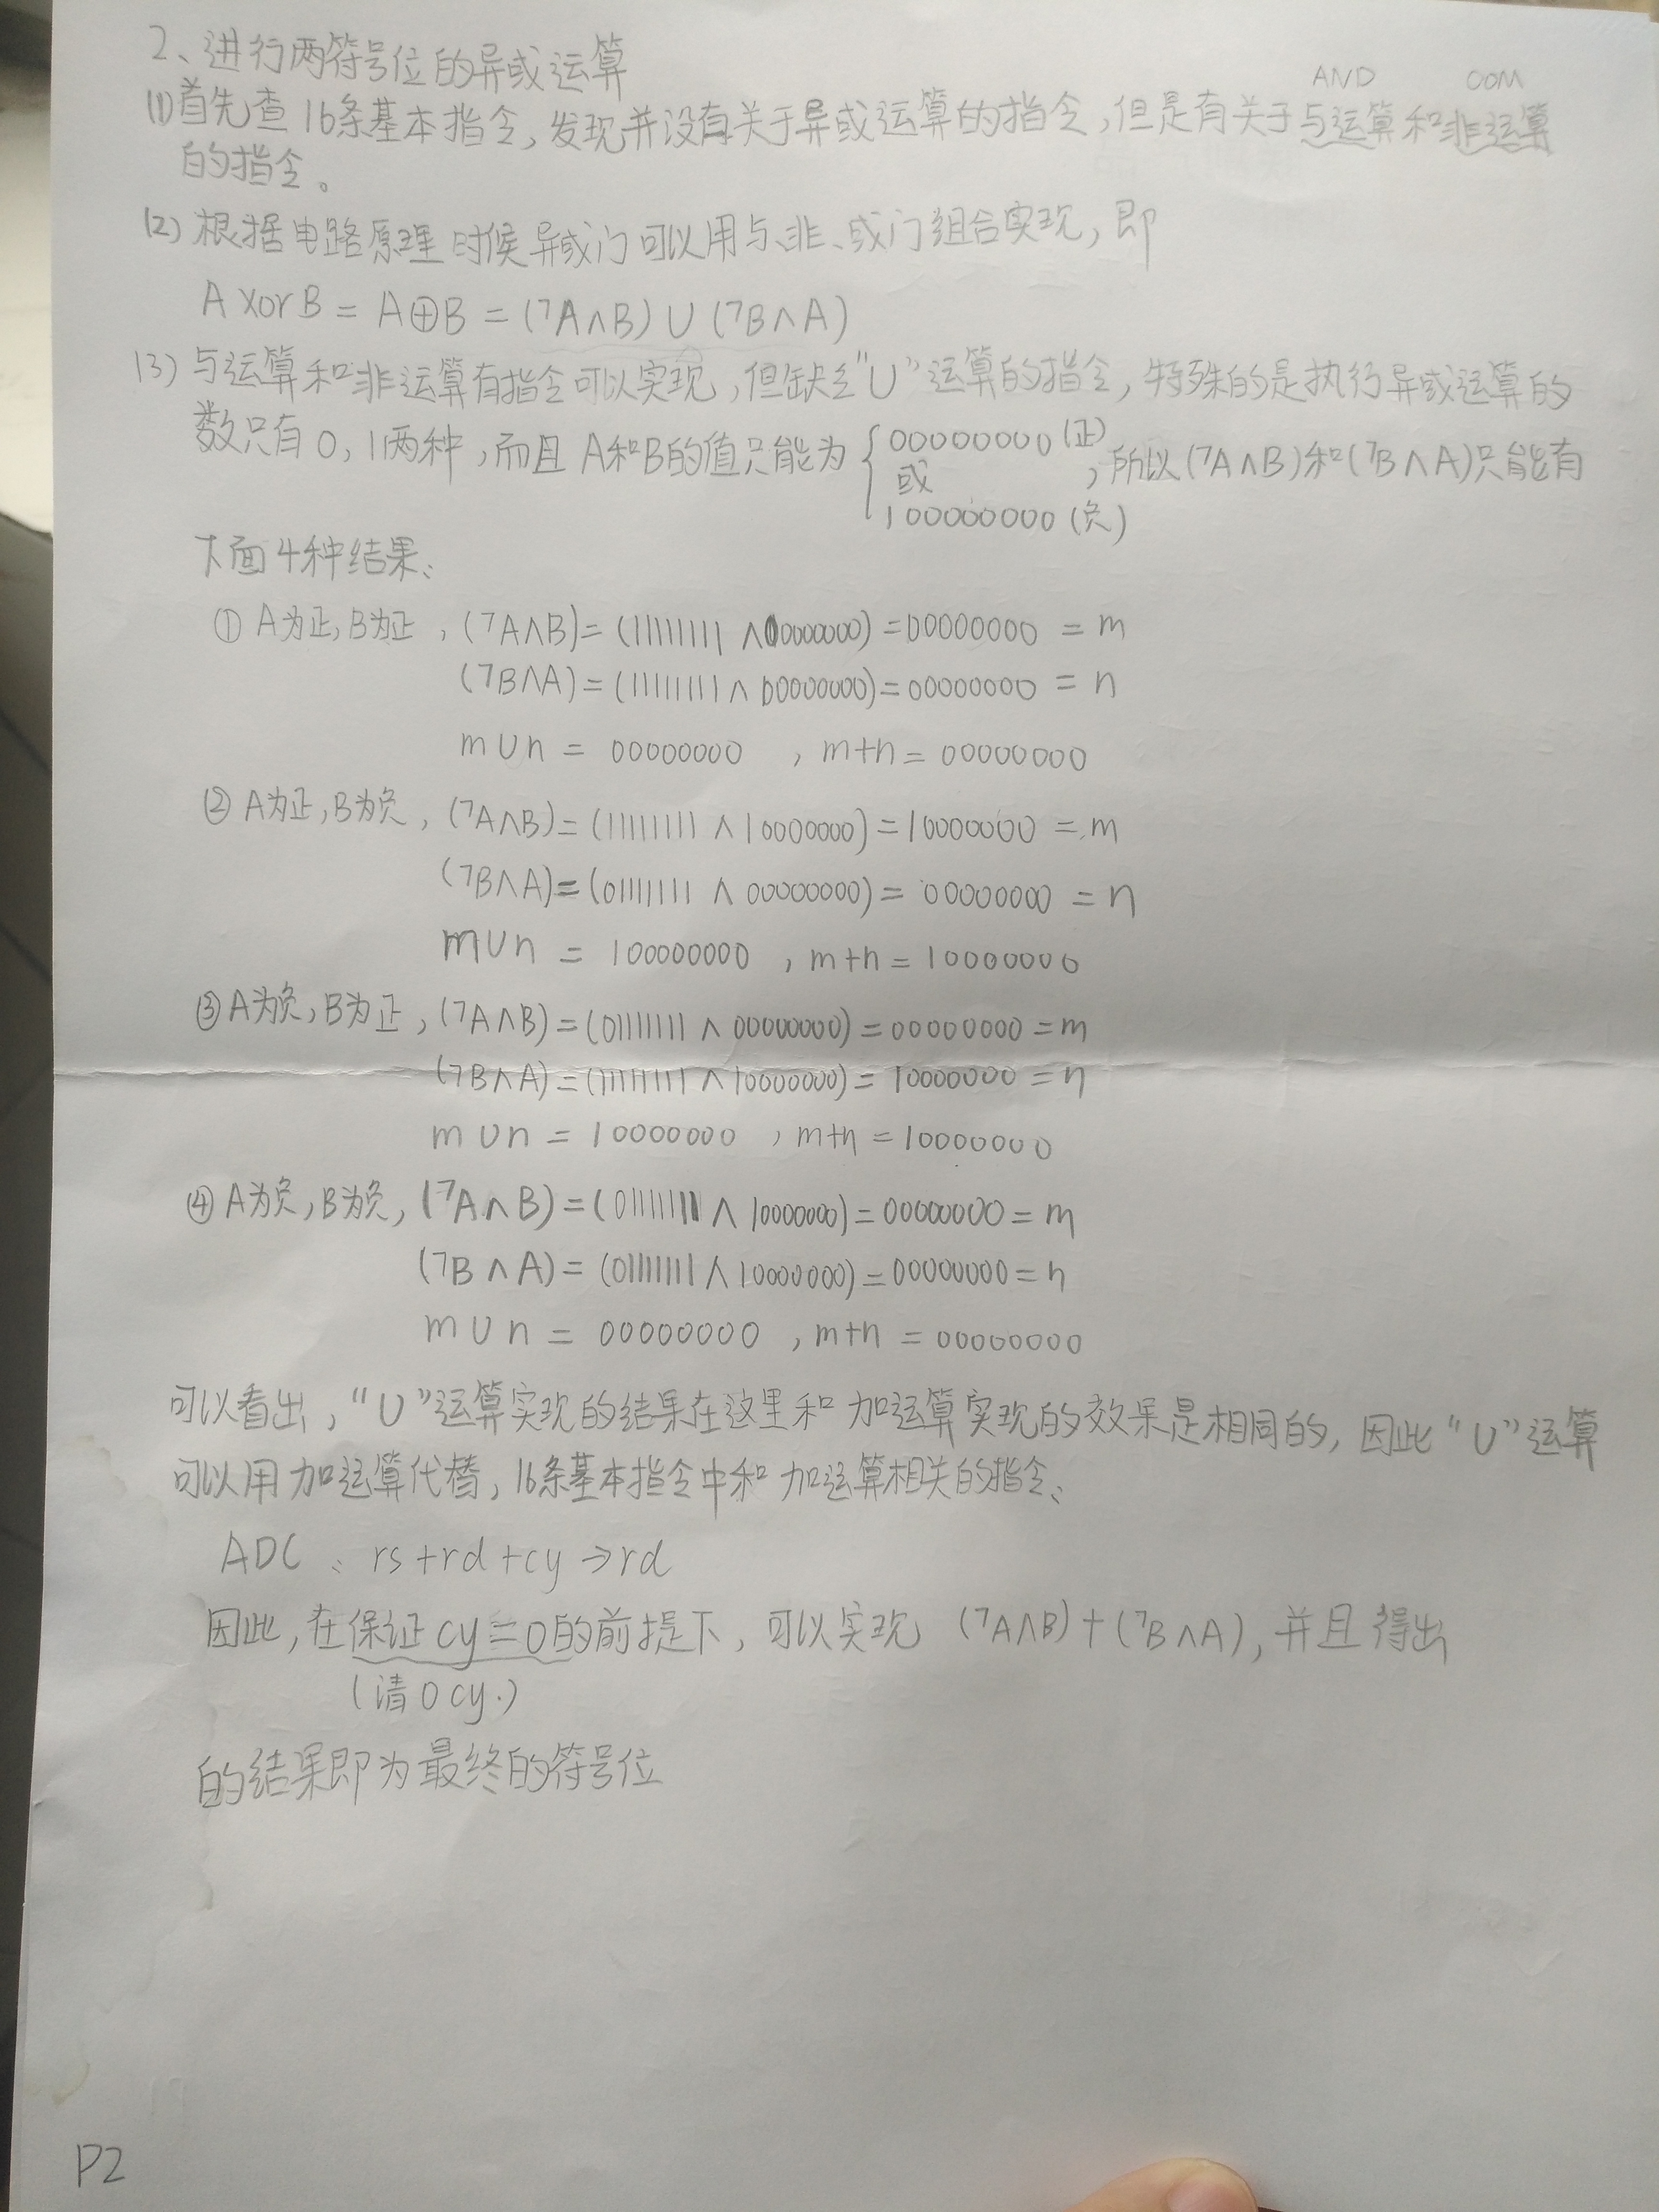 2、进行两符号位的异或运算
AND COM
(1)首先查16条基本指令,发现并没有关于异或运算的指令,但是有关于与运算和非运算
的指令。
(2)根据电路原理时候异或门可以用与、非、或门组合实现,即
A xor B = A⊕B = (¬A∧B)∪(¬B∧A)
(3)与运算和非运算有指令可以实现,但缺乏"U"运算的指令,特殊的是执行异或运算的
数只有0,1两种,而且A和B的值只能为{00000000(正)或100000000(负),所以(¬A∧B)和(¬B∧A)只能有
下面4种结果:
① A为正,B为正,(¬A∧B)=(11111111∧00000000)=00000000=m
(¬B∧A)=(11111111∧00000000)=00000000=n
m∪n=00000000,m+n=00000000
② A为正,B为负,(¬A∧B)=(11111111∧10000000)=10000000=m
(¬B∧A)=(01111111∧00000000)=00000000=n
m∪n=100000000,m+n=10000000
③ A为负,B为正,(¬A∧B)=(01111111∧00000000)=00000000=m
(¬B∧A)=(11111111∧10000000)=10000000=n
m∪n=10000000,m+n=10000000
④ A为负,B为负,(¬A∧B)=(01111111∧10000000)=00000000=m
(¬B∧A)=(01111111∧10000000)=00000000=n
m∪n=00000000,m+n=00000000
可以看出,"U"运算实现的结果在这里和加运算实现的效果是相同的,因此"U"运算
可以用加运算代替,16条基本指令中和加运算相关的指令:
ADC:rs+rd+cy→rd
因此,在保证cy=0的前提下,可以实现(¬A∧B)+(¬B∧A),并且得出
(清0cy.)
的结果即为最终的符号位
P2